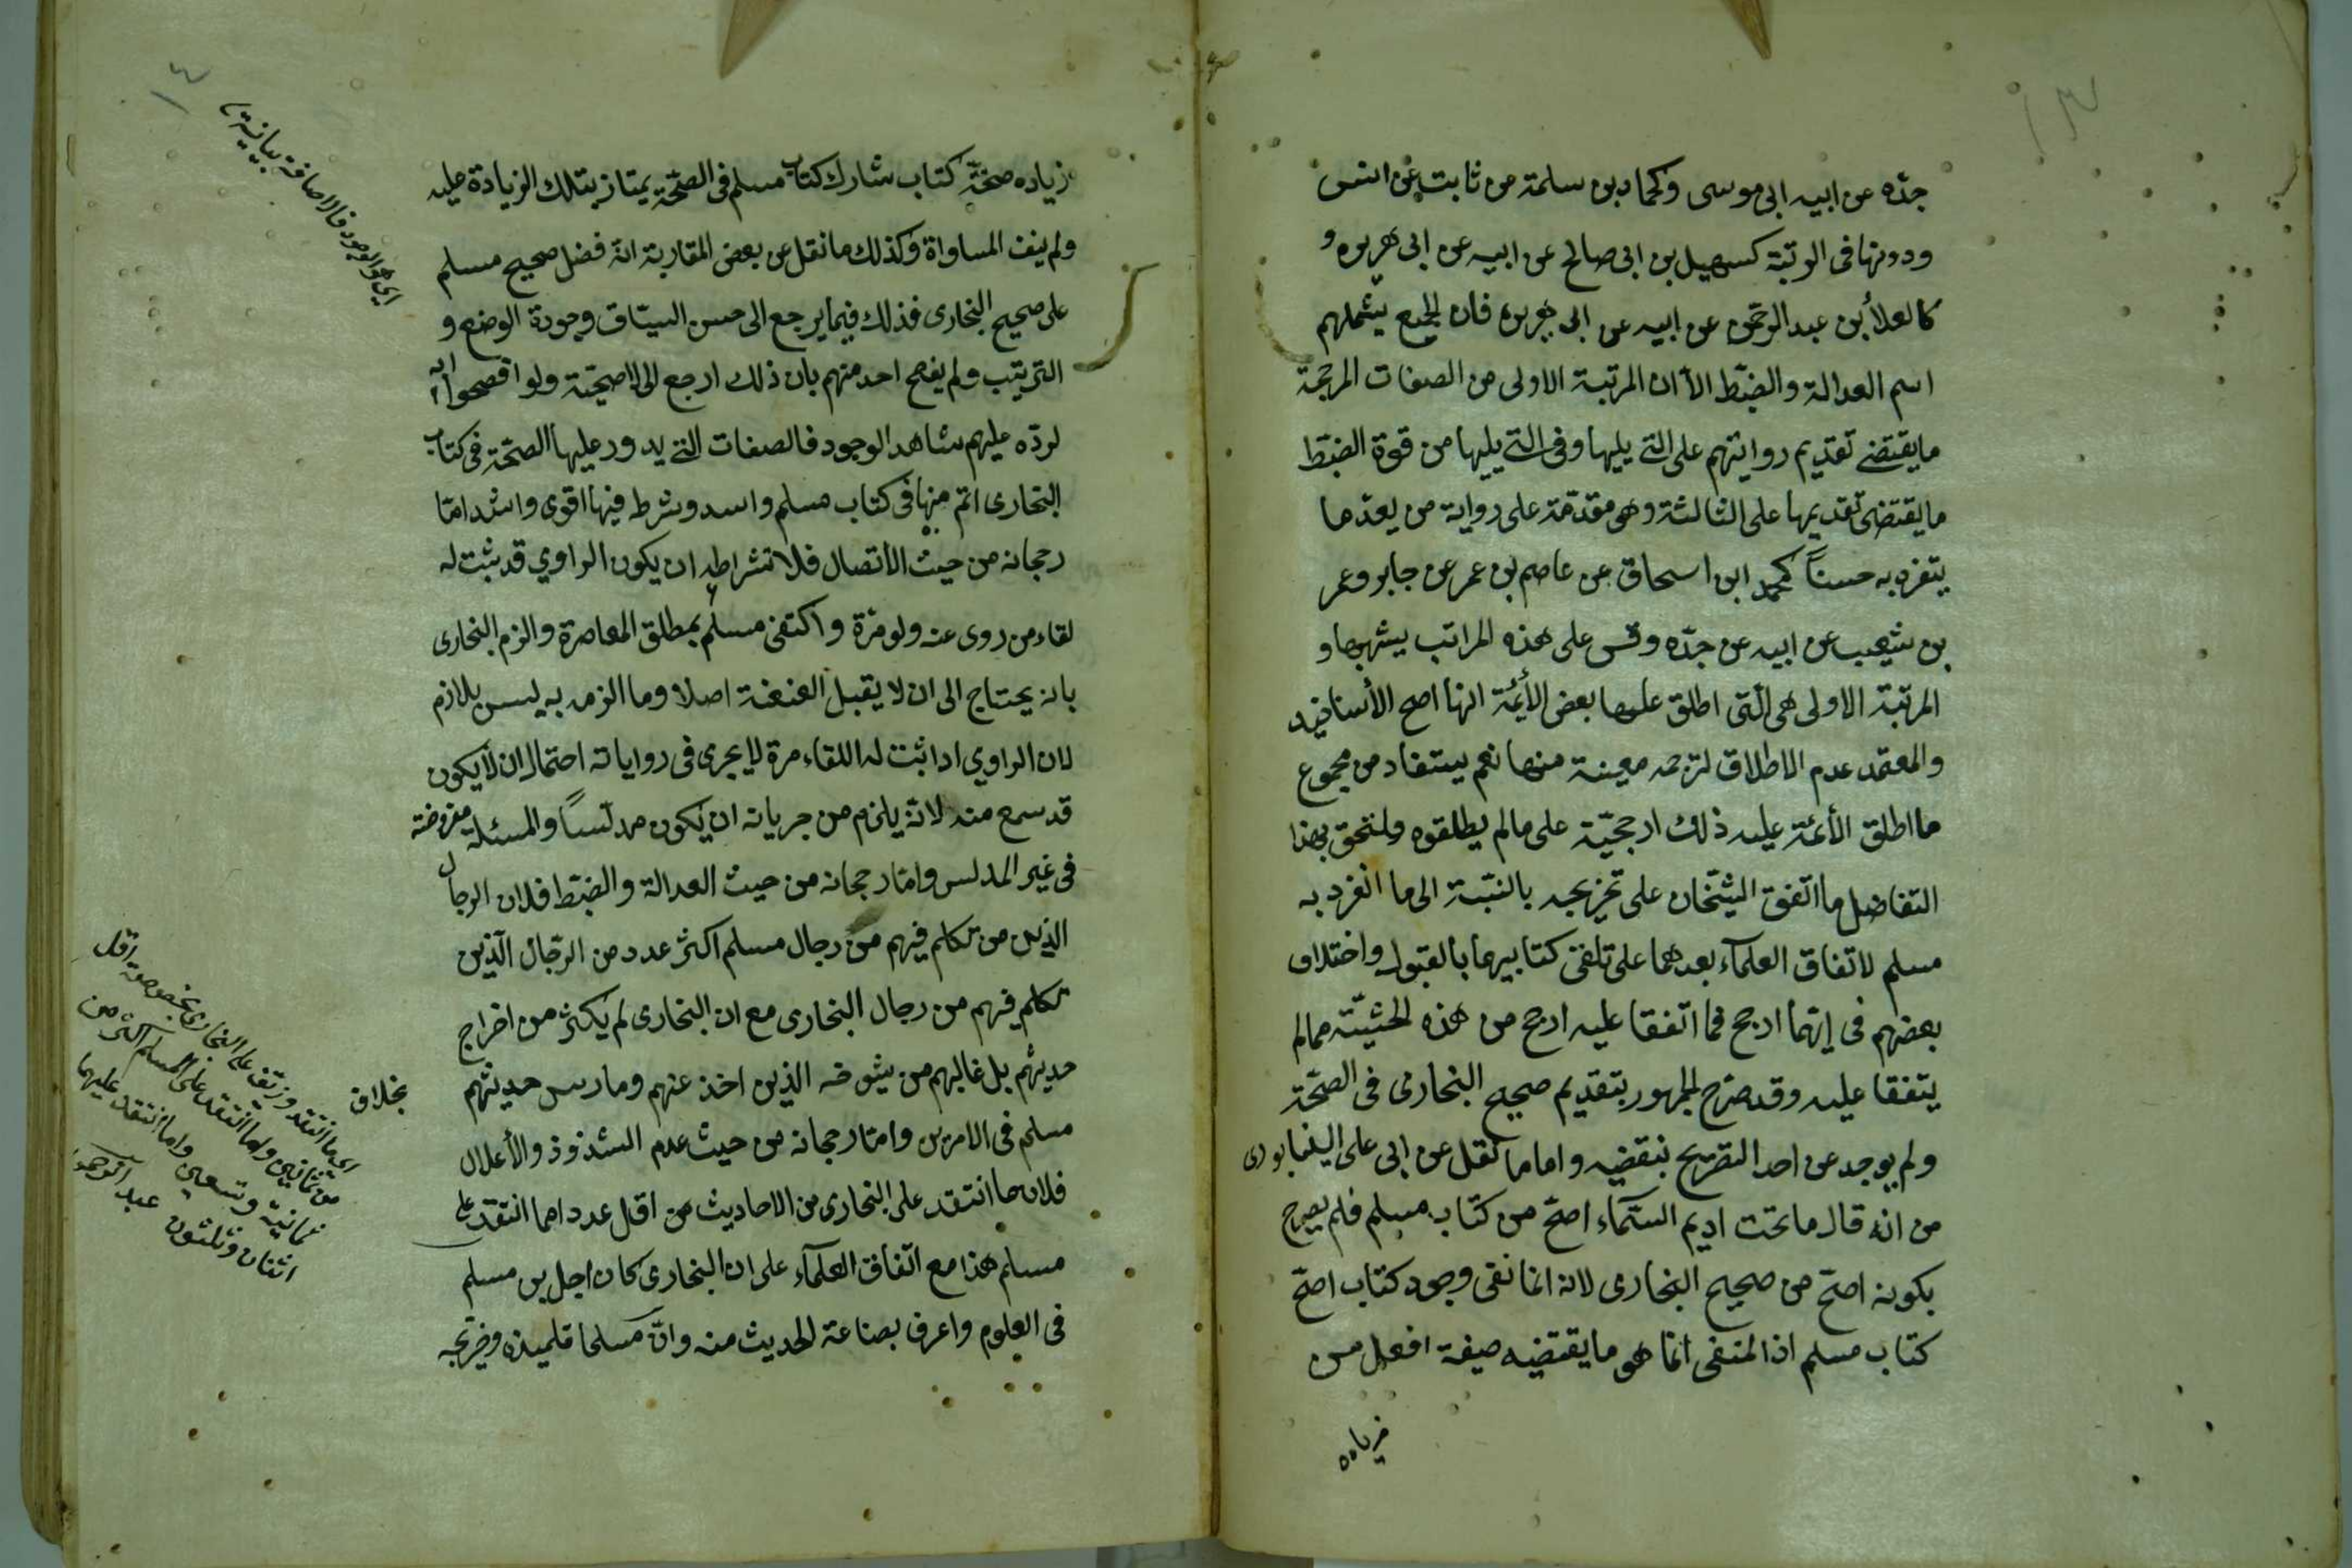 جدّه عن ابيه ابى موسى وكحماد بن سلمة عن ثابت عن انس
ودونها فى الرتبة كسهيل بن ابى صالح عن ابيه عن ابى هريره و
كالعلأ بن عبد الرحمن عن ابيه عن ابى هريره فان الجميع يشملهم
اسم العدالة والضبط الا ان المرتبة الاولى من الصفات المرجحة
ما يقتضى تقديم روايتهم على التى يليها وفى التى يليها من قوة الضبط
ما يقتضى تقديمها على الثالثة وهى مقدّمة على رواية من يعدّ ما
يتفرد به حسنًا كمحمد ابن اسحاق عن عاصم بن عمر عن جابر وعمر
بن شعيب عن ابيه عن جدّه وقس على هذه المراتب يشبهها و
المرتبة الاولى هى التى اطلق عليها بعض الأئمة انها اصح الأسانيد
والمعتمد عدم الاطلاق لترجمة معينة منها نعم يستفاد من مجموع
ما اطلق الأئمة عليه ذلك ارجحيّة على ما لم يطلقوه ويلتحق بهذا
التفاضل ما اتفق الشيخان على تخريجه بالنسبة الى ما انفرد به
مسلم لاتفاق العلمآء بعدهما على تلقى كتابيهما بالقبول واختلاف
بعضهم فى ايّهما ارجح فما اتفقا عليه ارجح من هذه الحيثيّة مما لم
يتفقا عليه وقد صرّح الجمهور بتقديم صحيح البخارى فى الصحّة
ولم يوجد عن احد التصريح بنقضيه واما ما نقل عن ابى على النيسابورى
من انه قال ما تحت اديم السّماء اصحّ من كتاب مسلم فلم يصرح
بكونه اصحّ من صحيح البخارى لانه انما نفى وجود كتاب اصحّ
كتاب مسلم اذ المنفى انما هو ما يقتضيه صيغة افعل من
زياده
زياده صحّة كتاب شارك كتاب مسلم فى الصحّة يمتاز بتلك الزيادة عليه
ولم ينف المساواة وكذلك ما نقل عن بعض المقاربة انه فضل صحيح مسلم
على صحيح البخارى فذلك فيما يرجع الى حسن السيّاق وجودة الوضع و
الترتيب ولم يفصح احد منهم بان ذلك ارجع الى الاصحيّة ولو افصحوا به
لردّه عليهم شاهد الوجود فالصفات التى يدور عليها الصحّة فى كتاب
البخارى اتم منها فى كتاب مسلم واسد وشرط فيها اقوى واشد امّا
رجحانه من حيث الاتصال فلاشتراطه ان يكون الراوي قد ثبت له
لقاء من روى عنه ولو مرّة واكتفى مسلم بمطلق المعاصرة والزم البخارى
بانه يحتاج الى ان لا يقبل العنعنة اصلا وما الزمه به ليس بلازم
لان الراوي اذا ثبت له اللقاء مرة لا يجرى فى رواياته احتمال ان لا يكون
قد سمع منه لانه يلزم من جريانه ان يكون مدلّسًا والمسئلة مفروضة
فى غير المدلس وامّا رجحانه من حيث العدالة والضبط فلان الرجال
الذين من تكلم فيهم من رجال مسلم اكثر عدد من الرّجال الّذين
تكلم فيهم من رجال البخارى مع ان البخارى لم يكثر من اخراج
حديثهم بل غالبهم من شيوخه الذين اخذ عنهم ومارس حديثهم
بخلاف
مسلم فى الامرين وامّا رجحانه من حيث عدم الشذوذ والأعلال
فلان ما انتقد على البخارى من الاحاديث من اقل عددا مما انتقد على
مسلم هذا مع اتّفاق العلمآء على ان البخارى كان اجل من مسلم
فى العلوم واعرف بصناعة الحديث منه وانّ مسلما تلميذه وخريجه
اى هو الوجود فالاضافة بيانية
من ثمانين واما انتقد على المسلم اكثر من
ثمانية وتسعين واما انتقد عليهما
اثنان وثلثون